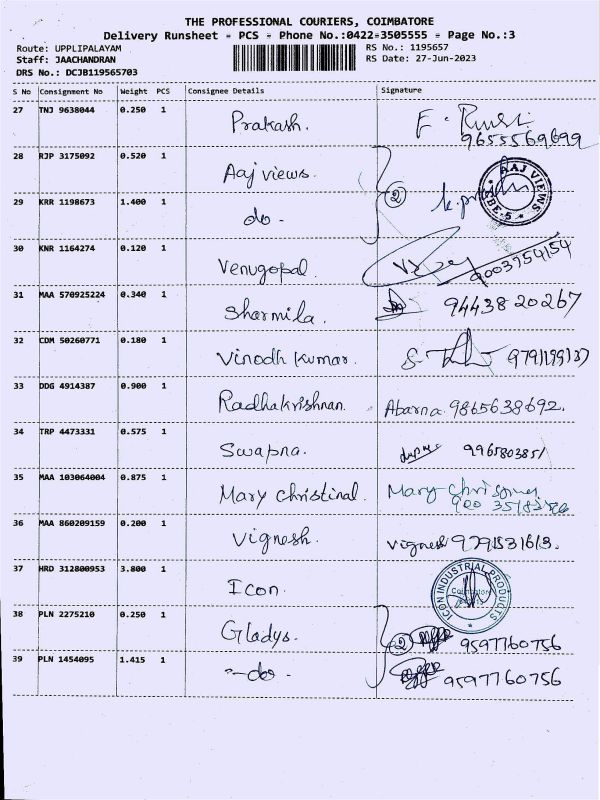 THE PROFESSIONAL COURIERS, COIMBATORE
Delivery Runsheet - PCS - Phone No.:0422-3505555 - Page No.:3
Route: UPPLIPALAYAM RS No.: 1195657
Staff: JAACHANDRAN RS Date: 27-Jun-2023
DRS No.: DCJB119565703
S No Consignment No Weight PCS Consignee Details Signature
27 TNJ 9638044 0.250 1 Prakash.
9655569699
28 RJP 3175092 0.520 1 Aaj views.
AAJ VIEWS
CBE-5
29 KRR 1198673 1.400 1 do - 2
30 KNR 1164274 0.120 1 Venugopal. 9003954154
31 MAA 570925224 0.340 1 Sharmila. 9443820267
32 CDM 50260771 0.180 1 Vinodh Kumar. 9791199137
33 DDG 4914387 0.900 1 Radhakrishnan. Abarna 9865638692.
34 TRP 4473331 0.575 1 Swapna. 9965803851
35 MAA 103064004 0.875 1 Mary Christinal. Mary
36 MAA 860209159 0.200 1 Vignesh. Vignesh 9791531613.
37 HRD 312800953 3.800 1 Icon.
ICON INDUSTRIAL PRODUCTS
Coimbatore
38 PLN 2275210 0.250 1 Gladys. 2 9597760756
39 PLN 1454095 1.415 1 -do- 9597760756